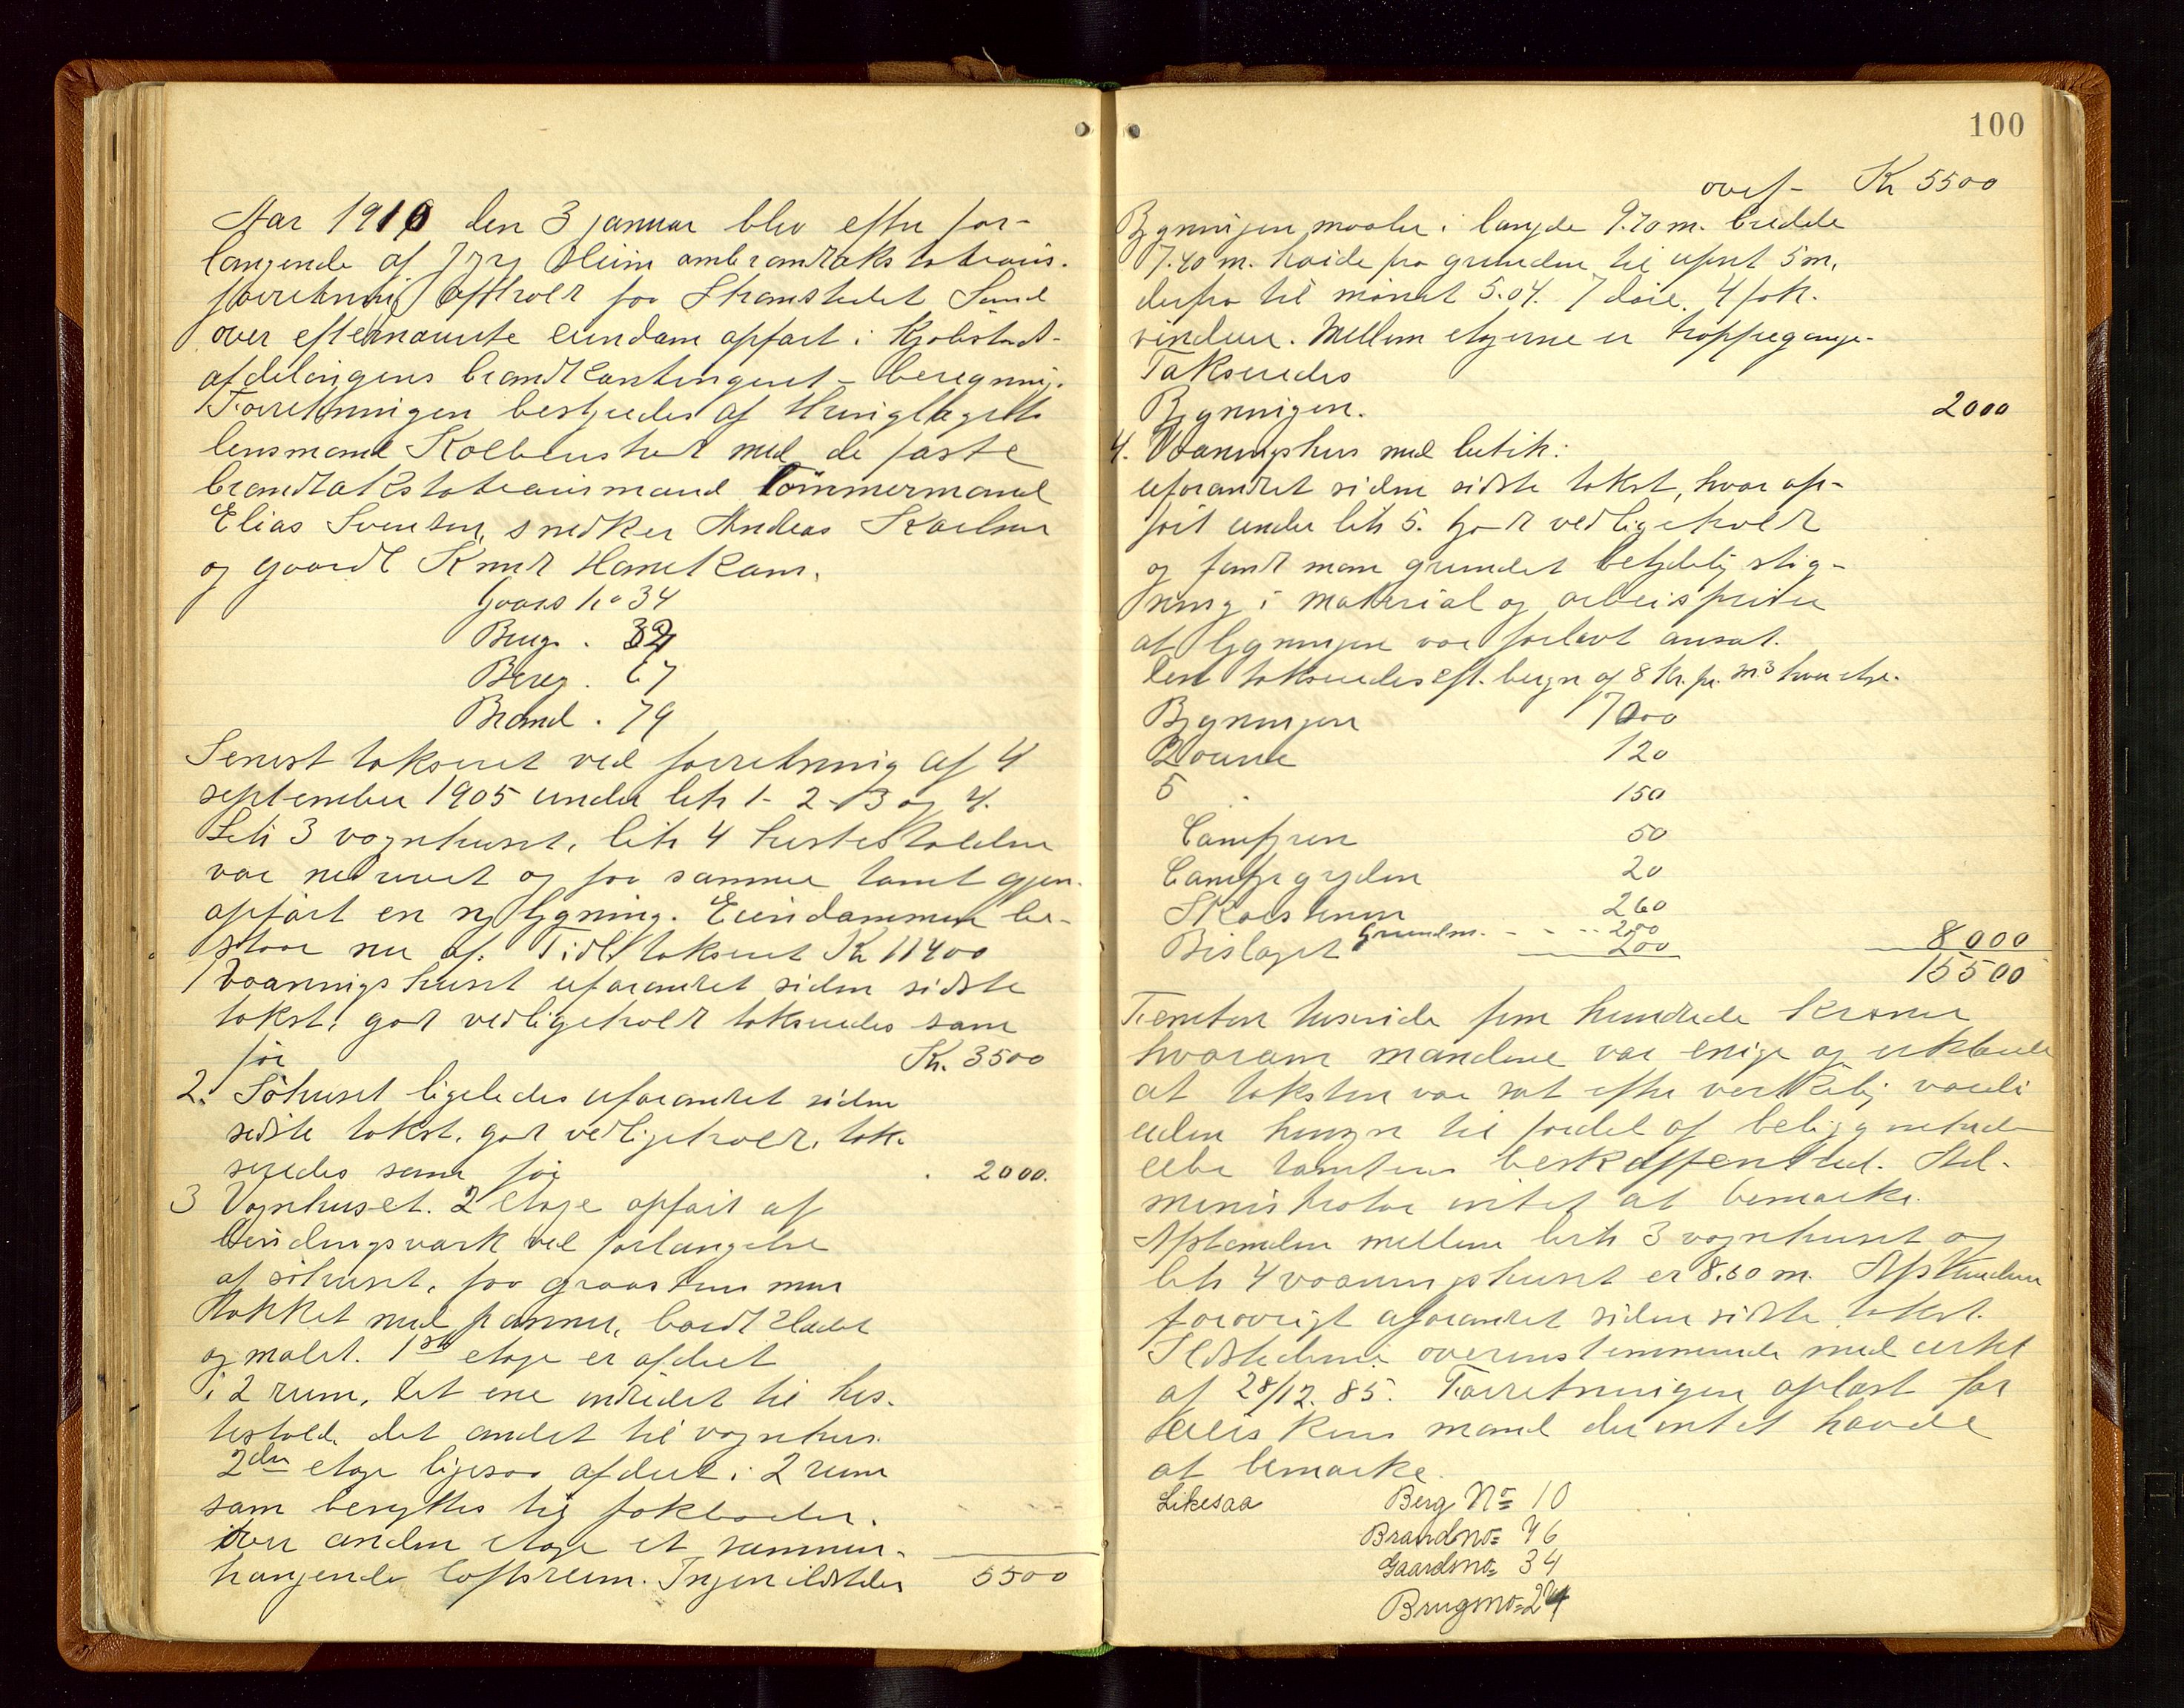 Aar 1910 den 3 januar blev efter for-
langende af Heim ombrandtakstations-
forretning afholdt paa Strandstedet Sand
over efternævnte eiendom opført i Kjøbstads-
afdelingens brandkontingent-beregning.
Forretningen bestyredes af thinglagets
lensmand Kolbenstvedt med de faste
brandtakstationsmænd Tømmermand
Elias Svensen, snedker Andreas
og gaardb Knud Hanekam.
Gaards no 34
Brugs . 32
Bereg . 67
Brand . 79
Senest takseret ved forretning af 4
september 1905 under litr 1-2-3 og 4.
Litr 3 vognhuset, litr 4 hestestalden
var nedrevet og paa samme tomt gjen-
opført en ny bygning. Eiendommen be-
staar nu af. Tidl. takseret Kr 11400
1 Vaaningshuset uforandret siden sidste
takst, god vedligeholdt takseredes som
før Kr. 3500
2. Søhuset ligeledes uforandret siden
sidste takst, god vedligeholdt, tak-
seredes som før . 2000.
3 Vognhuset. 2 etage opført af
bindingsværk ved forlængelse
af søhuset, paa graastens mur
tækket med panner, bordklædt
og malet. 1ste etage er afdeelt
i 2 rum, det ene indredet til hes-
testald, det andet til vognhus.
2den etage ligesaa afdeelt i 2 rum
som benyttes til pakboder.
Over anden etage et sammen-
hængende loftsrum. Ingen ildsteder 5500
100
overf- Kr 5500
Bygningen maaler i længde 9.70 m. bredde
7.40 m. høide fra grunden til ufsen 5 m,
derfra til mønet 5.04. 7 døre, 4 fok.
vinduer. Mellem etagerne er trappegange.
Takseredes
Bygningen. 2000
4. Vaaningshus med butik:
uforandret siden sidste takst, hvor op-
ført under litr 5. God vedligeholdt
og fandt man grundet betydelig stig-
ning i material og arbeidspriser
at bygningen var forlavt ansat.
Den takseredes eft. beregn af 8 Kr. pr. m3 hver etg.
Bygningen 7000
2 ovne 120
5 . 150
Comfyren 50
Comfyrgryden 20
Skorstenen 260
Grundm. - - -- 250
Bislaget 200 8000
15500
Femten tusinde fem hundrede kroner
hvorom mændene var enige og erklærede
at taksten var sat efter verkelig værdi
uden hensyn til fordel af beliggenheden
eller tomtens beskaffenhed. Ad-
ministrator intet at bemærke.
Afstanden mellem litr 3 vognhuset og
litr 4 vaaningshuset er 8.60 m. Afstanden
forøvrigt uforandret siden sidste takst.
Ildstederne overensstemmende med cirkl
af 28/12. 85. Forretningen oplæst for
mand der intet havde
at bemærke.
Likesaa Berg No 10
Brandno= 46
Gaardsno= 34
Brugsno= 24